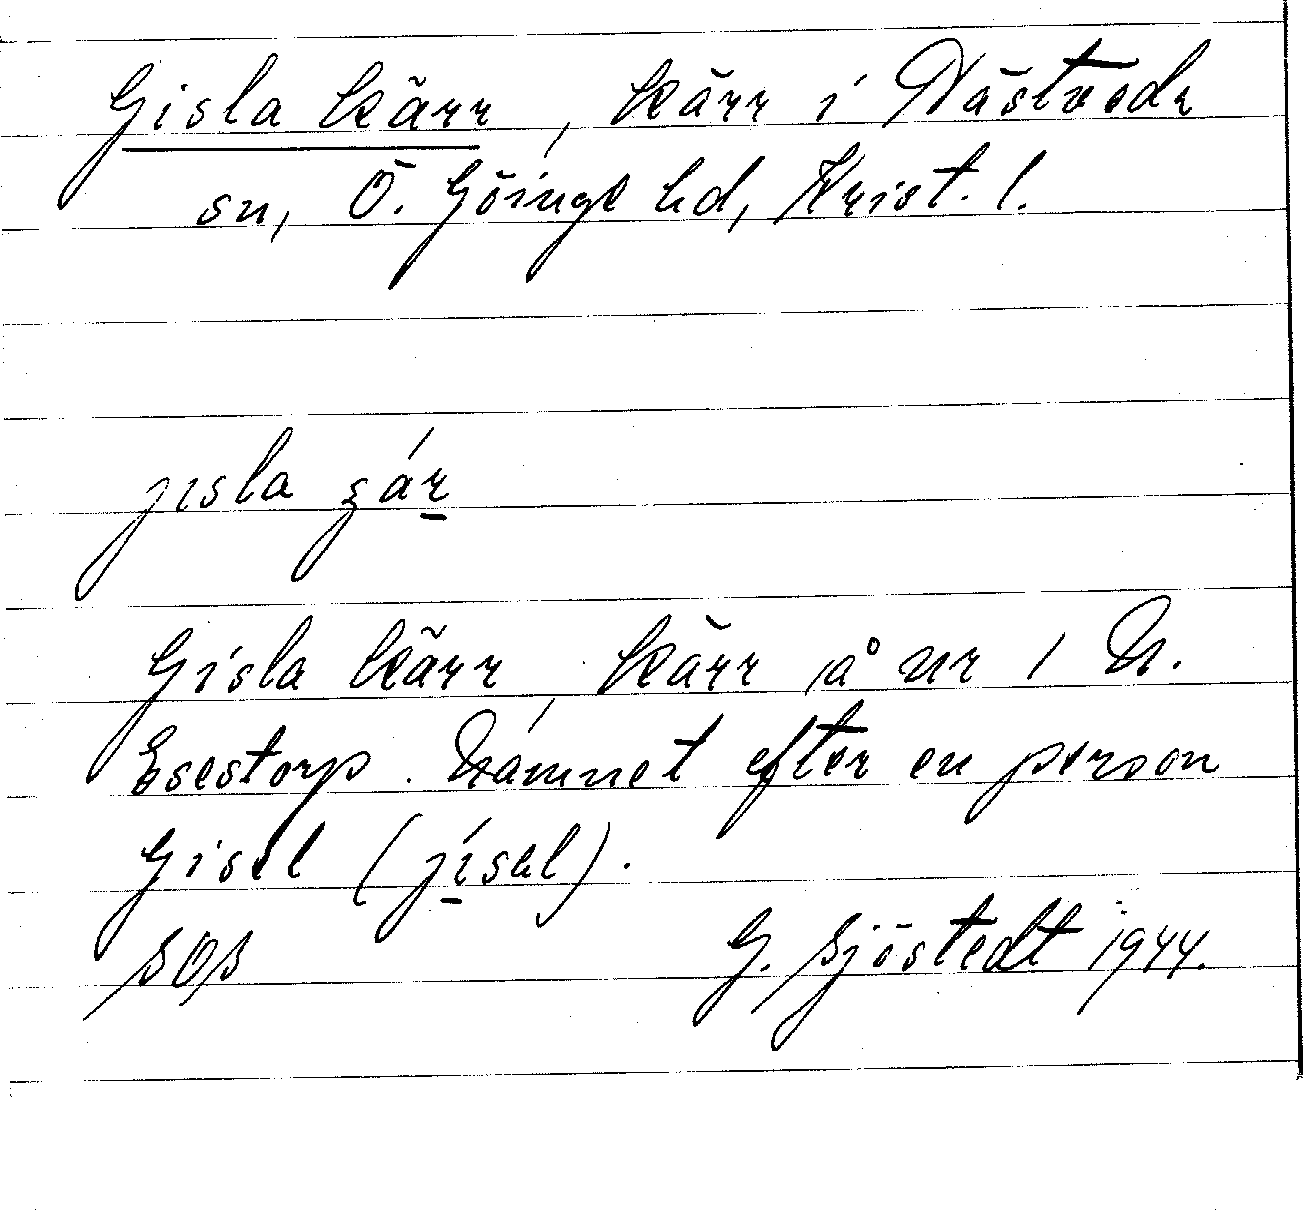 Gisla kärr, kärr i Västveda
sn, Ö. Göinge hd, Krist. l.
jisla
Gisla kärr, kärr å nr 1 N.
Esestorp. Namnet efter en person
Gisel (jísəl).
SOS G. Sjöstedt 1944.